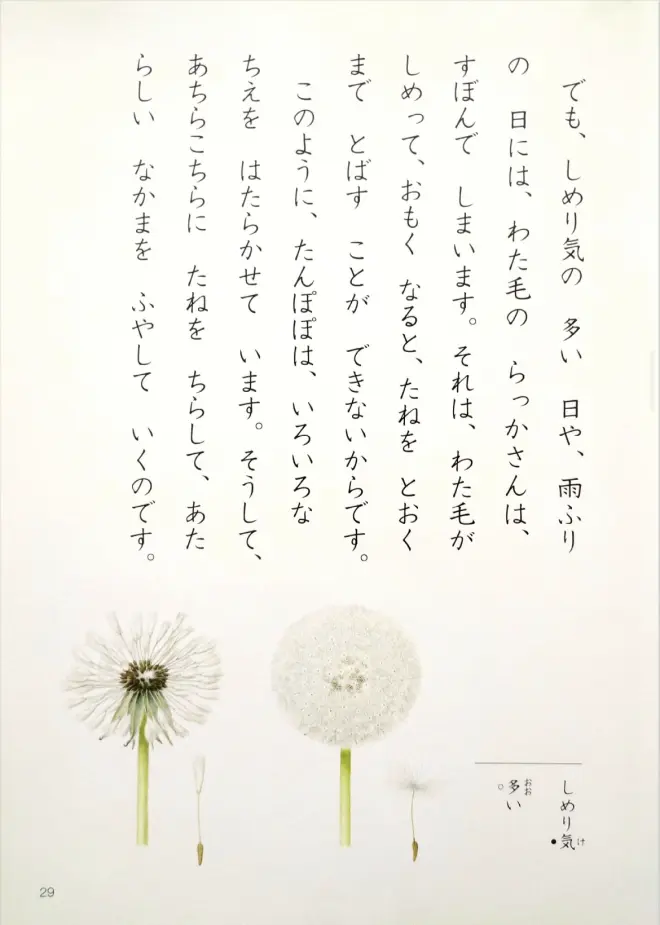 でも、しめり気の　多い　日や、雨ふり
の　日には、わた毛の　らっかさんは、
すぼんで　しまいます。それは、わた毛が
しめって、おもく　なると、たねを　とおく
まで　とばす　ことが　できないからです。
このように、たんぽぽは、いろいろな
ちえを　はたらかせて　います。そうして、
あちらこちらに　たねを　ちらして、あた
らしい　なかまを　ふやして　いくのです。
しめり気
け
多い。
おお
29